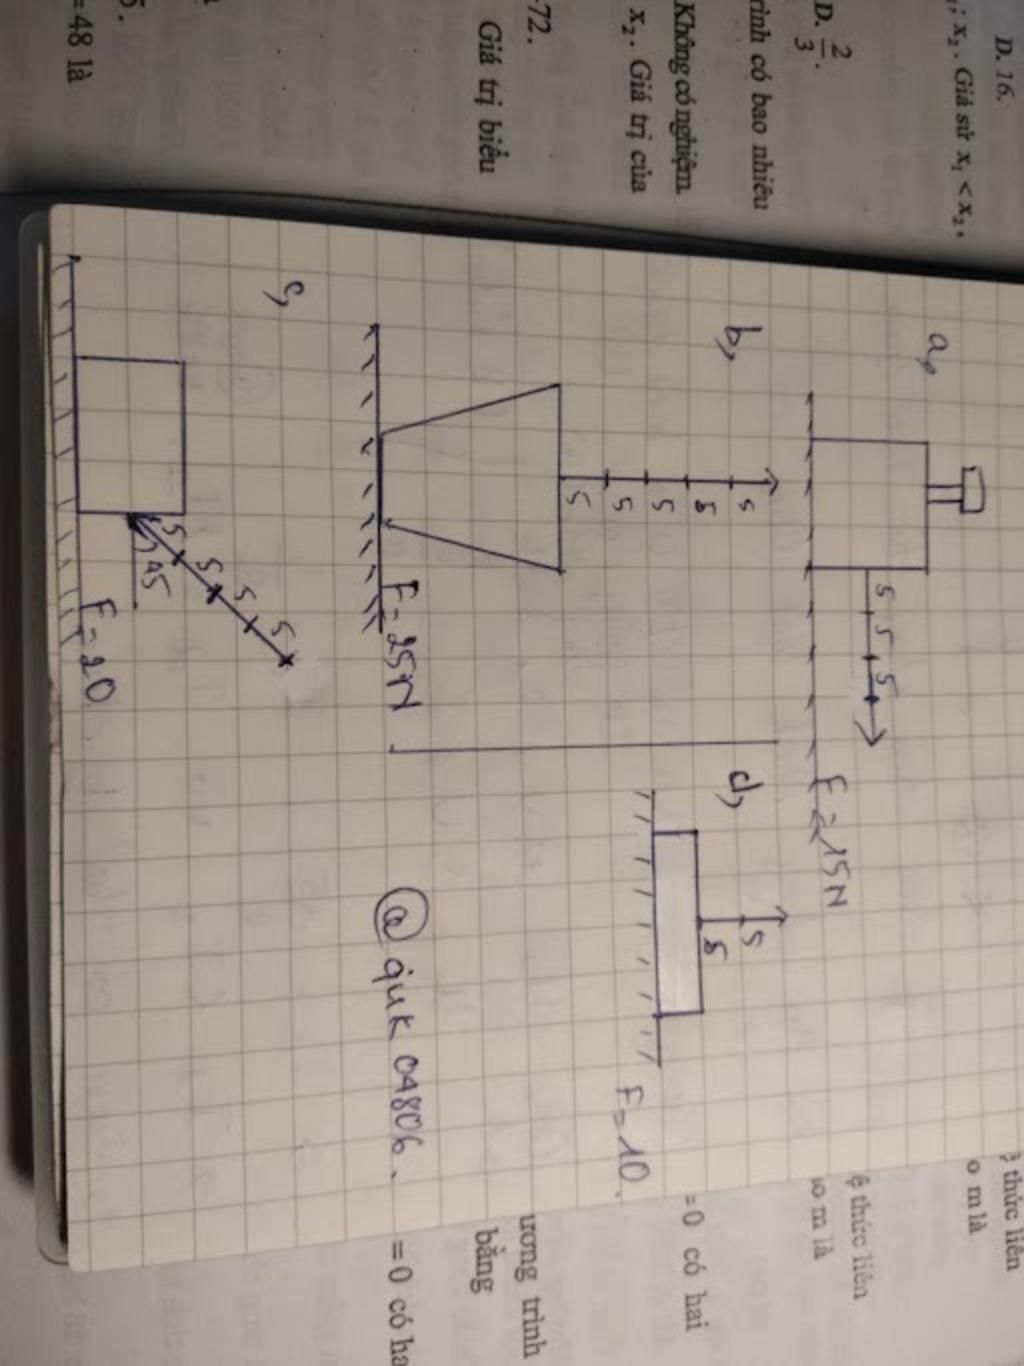 D. 16.
; x₂ . Giả sử x₁ < x₂ ,
D. 2/3 .
rình có bao nhiêu
Không có nghiệm.
x₂ . Giá trị của
-72.
Giá trị biểu
= 48 là
a,
5 5 5
F = 15N
b,
5 5 5 5 5
F = 25N
c,
5 5 5 5
45
F = 20
d,
5 5
F = 10.
@quk04806.
ệ thức liên
o m là
ệ thức liên
o m là
= 0 có hai
ương trình
bằng
= 0 có ha